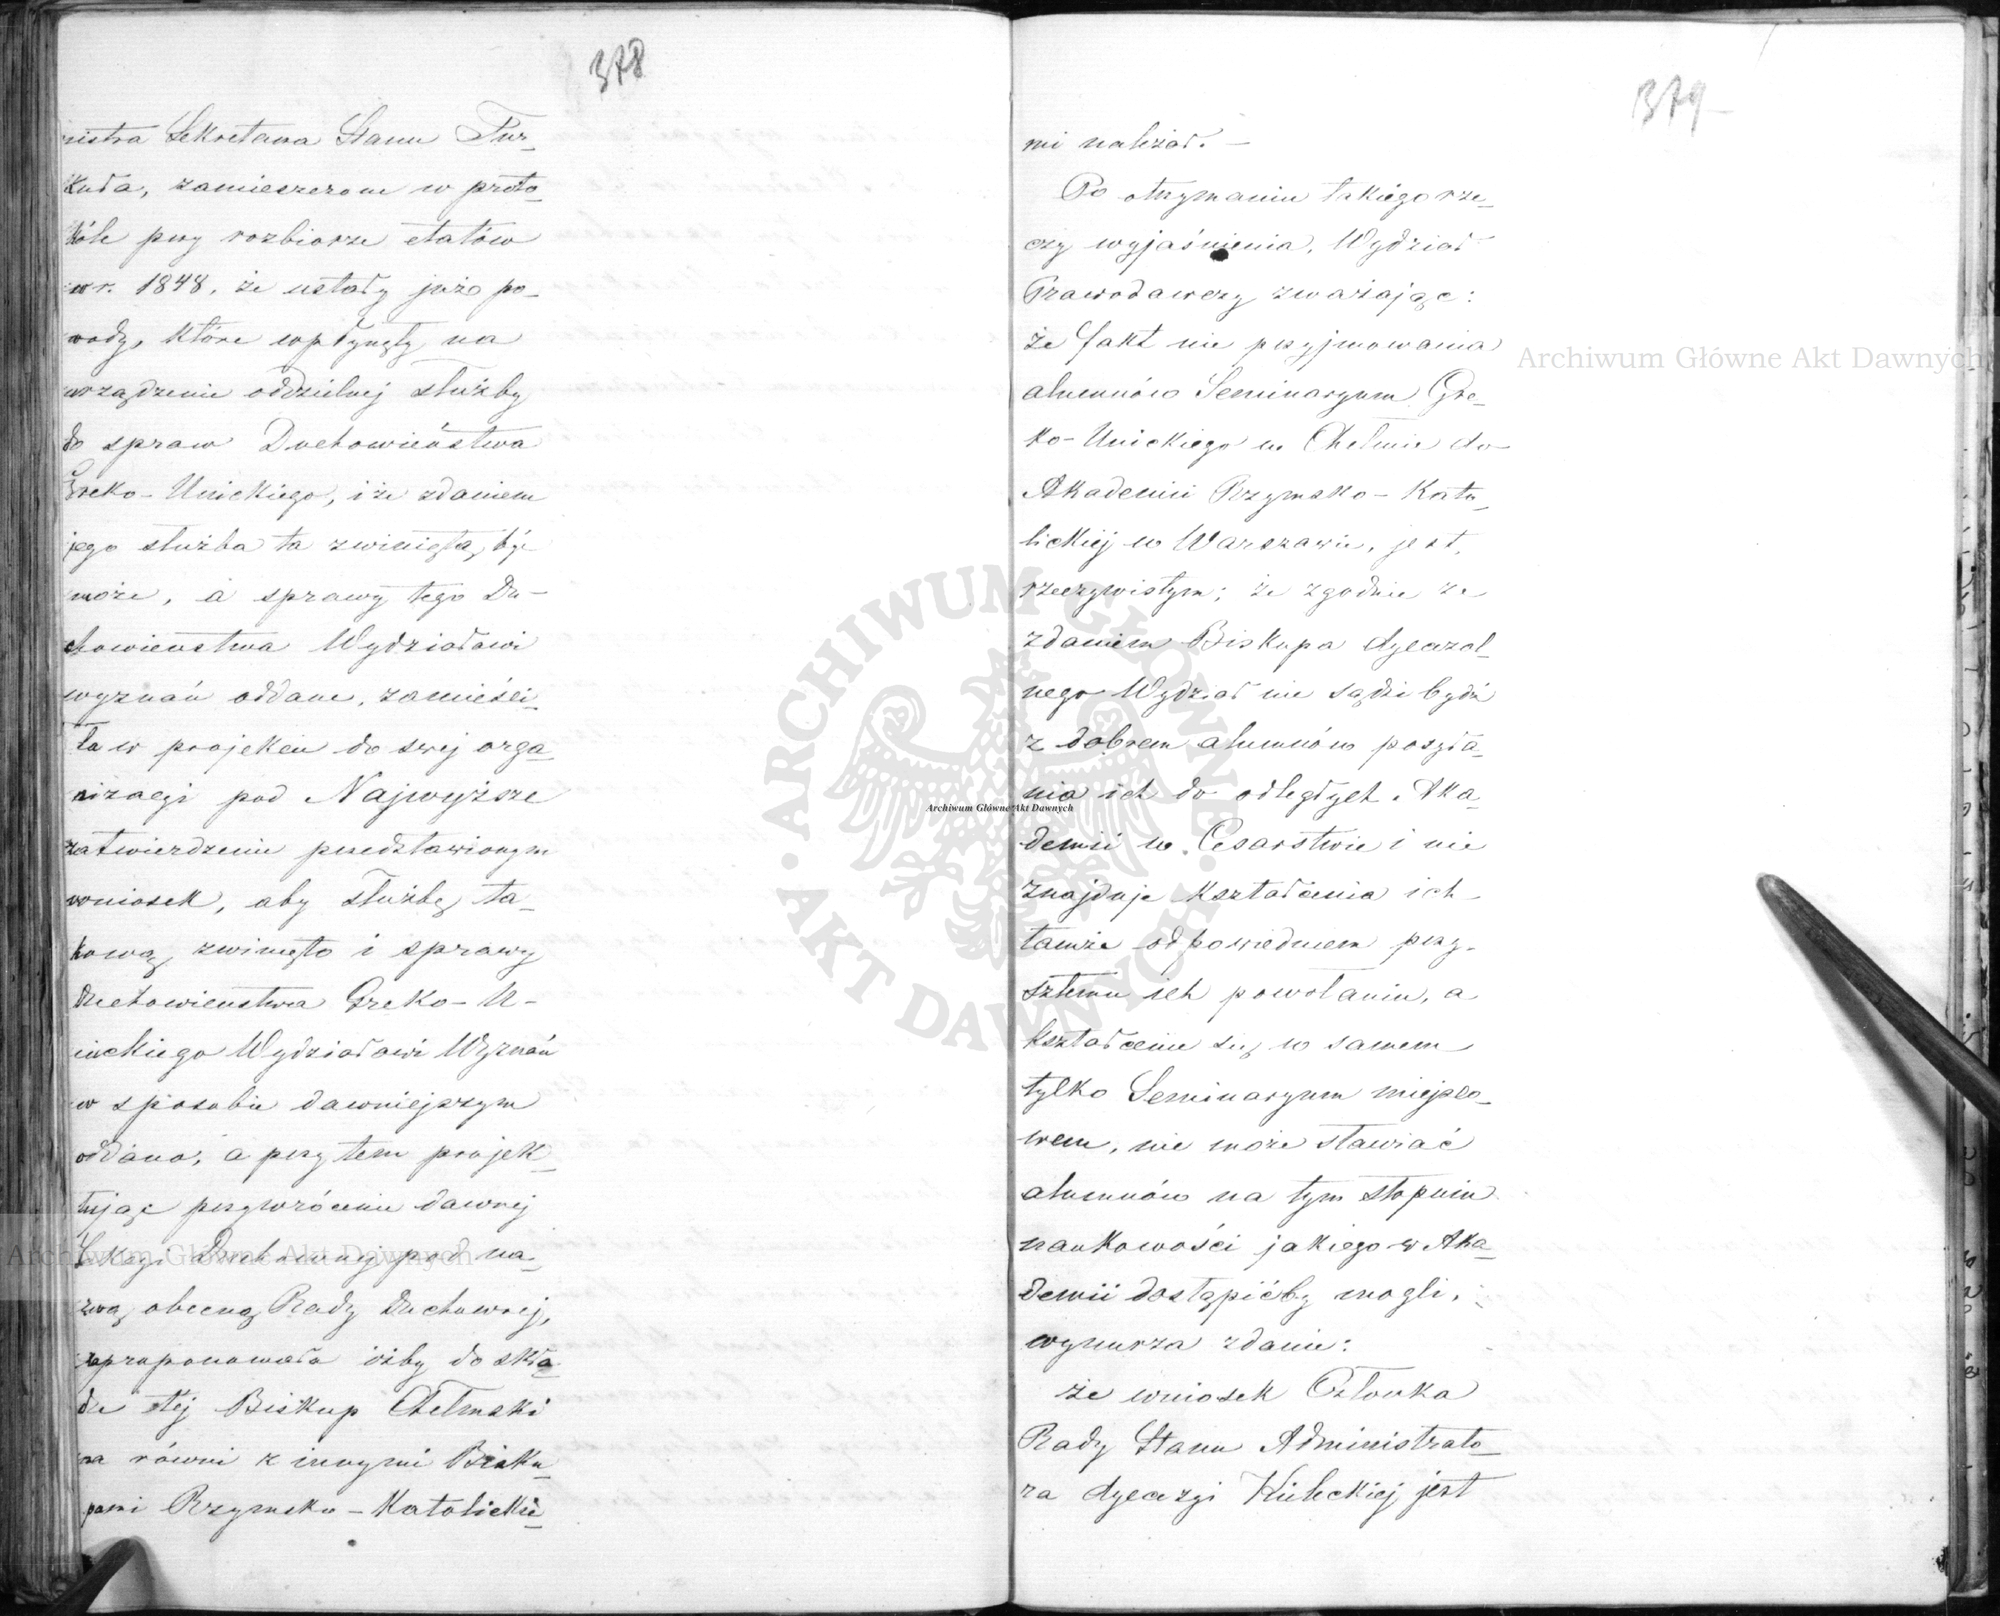 378
nistra Sekretarza Stanu Tur-
kuła, zamieszczone w proto-
kóle przy rozbiorze etatów
w r. 1848, że ustały już po-
wody, które wpłynęły na
urządzenie oddzielnej służby
do spraw Duchowieństwa
Greko-Unickiego, i że zdaniem
jego służba ta zwiniętą być
może, a sprawy tego Du-
chowieństwa Wydziałowi
wyznań oddane, zamieści-
ła w projekcie do swej orga-
nizacyi pod Najwyższe
zatwierdzenie przedstawionym
wniosek, aby służbę ta-
kową zwinięto i sprawy
Duchowieństwa Greko-U-
nickiego Wydziałowi Wyznań
w sposobie dawniejszym
oddano; a przytem projek-
tując przywrócenie dawnej
Sekcyi Duchownej pod na-
zwą obecną Rady Duchownej,
zaproponowała iżby do skła-
du tej Biskup Chełmski
na równi z innymi Bisku-
pami Rzymsko-Katolickie-
379
mi należał.—
Po otrzymaniu takiego rze-
czy wyjaśnienia, Wydział
Prawodawczy zważając:
że fakt nie przyjmowania
alumnów Seminaryum Gre-
ko-Unickiego w Chełmie do
Akademii Rzymsko-Kato-
lickiej w Warszawie, jest
rzeczywistym; że zgodnie ze
zdaniem Biskupa dyecezal-
nego Wydział nie sądzi bydź
z dobrem alumnów posyła-
nia ich do odległych Aka-
demii w Cesarstwie i nie
znajduje kształcenia ich
tamże odpowiedniem przy-
szłemu ich powołaniu, a
kształcenie się w samem
tylko Seminaryum miejsco-
wem, nie może stawiać
alumnów na tym stopniu
naukowości jakiego w Aka-
demii dostąpićby mogli,
wynurza zdanie:
że wniosek Członka
Rady Stanu Administrato-
ra dyecezyi Kieleckiej jest
Archiwum Główne Akt Dawnych
Archiwum Główne Akt Dawnych
Archiwum Główne Akt Dawnych
ARCHIWUM GŁÓWNE AKT DAWNYCH